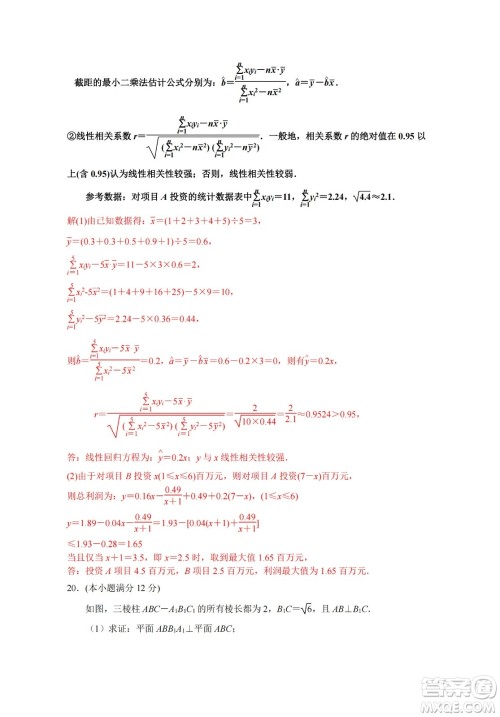 截距的最小二乘法估计公式分别为：b̂＝(∑ⁿᵢ₌₁xᵢyᵢ－nx̄·ȳ)/(∑ⁿᵢ₌₁xᵢ²－nx̄²)，â＝ȳ－b̂x̄．
②线性相关系数 r＝(∑ⁿᵢ₌₁xᵢyᵢ－nx̄·ȳ)/√((∑ⁿᵢ₌₁xᵢ²－nx̄²)(∑ⁿᵢ₌₁yᵢ²－nȳ²))．一般地，相关系数 r 的绝对值在 0.95 以
上(含 0.95)认为线性相关性较强；否则，线性相关性较弱．
参考数据：对项目 A 投资的统计数据表中∑ⁿᵢ₌₁xᵢyᵢ＝11，∑ⁿᵢ₌₁yᵢ²＝2.24，√4.4≈2.1．
解(1)由已知数据得：x̄＝(1＋2＋3＋4＋5)÷5＝3，
ȳ＝(0.3＋0.3＋0.5＋0.9＋1)÷5＝0.6，
∑⁵ᵢ₌₁xᵢyᵢ－5x̄·ȳ＝11－5×3×0.6＝2，
∑⁵ᵢ₌₁xᵢ²-5x̄²＝(1＋4＋9＋16＋25)－5×9＝10，
∑⁵ᵢ₌₁yᵢ²－5ȳ²＝2.24－5×0.36＝0.44，
则b̂＝(∑⁵ᵢ₌₁xᵢyᵢ－5x̄·ȳ)/(∑⁵ᵢ₌₁xᵢ²－5x̄²)＝0.2，â＝ȳ－b̂x̄＝0.6－0.2×3＝0，则有ŷ＝0.2x，
r＝(∑⁵ᵢ₌₁xᵢyᵢ－5x̄·ȳ)/√((∑⁵ᵢ₌₁xᵢ²－5x̄²)(∑⁵ᵢ₌₁yᵢ²－5ȳ²))＝2/√(10×0.44)＝2/2.1≈0.9524＞0.95，
答：线性回归方程为：ŷ＝0.2x；y 与 x 线性相关性较强．
(2)由于对项目 B 投资 x(1≤x≤6)百万元，则对项目 A 投资(7－x)百万元，
则总利润为：y＝1.69－0.49/(x＋1)＋0.2(7－x)(1≤x≤6)，
y＝1.89－0.04x－0.49/(x＋1)＝1.93－[0.04(x＋1)＋0.49/(x＋1)]
≤1.93－0.28＝1.65
当且仅当 x＋1＝3.5，即 x＝2.5 时，取到最大值 1.65 百万元，
答：投资 A 项目 4.5 百万元，B 项目 2.5 百万元，利润最大值为 1.65 百万元．
20．(本小题满分 12 分)
如图，三棱柱 ABC－A₁B₁C₁ 的所有棱长都为 2，B₁C＝√6，且 AB⊥B₁C．
（1）求证：平面 ABB₁A₁⊥平面 ABC；